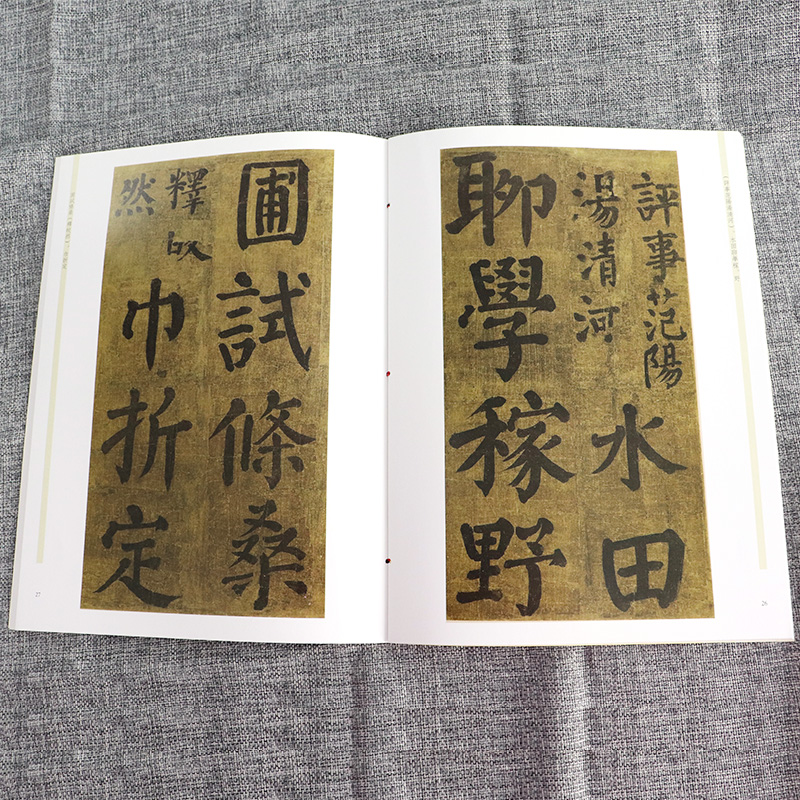 評事范陽
湯清河
水田
聊學稼野
26
圃試條桑
釋皎
然
巾折定
27